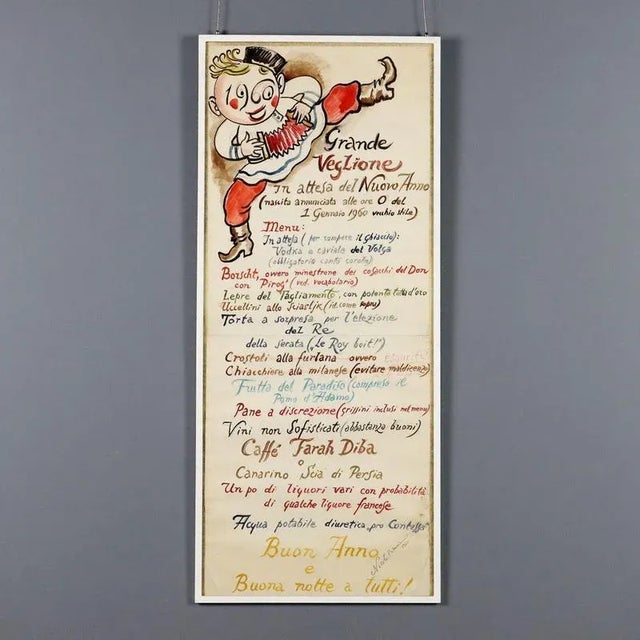 1960
Grande
Veglione
In attesa del Nuovo Anno
(nascita annunciata alle ore 0 del
1 Gennaio 1960 vecchio stile)
Menu:
In attesa (per rompere il ghiaccio):
Vodka e caviale del Volga
(obbligatorio canto corale)
Borscht, ovvero minestrone dei cosacchi del Don
con "Pirog" (ved. vocabolario)
Lepre del Tagliamento, con polenta d'oro
Uccellini allo Sciasljk (il come sopra)
Torta a sorpresa per l'elezione
del Re
della serata ("Le Roy boit!")
Crostoli alla furlana ovvero
Chiacchiere alla milanese (evitare maldicenza)
Frutta del Paradiso (compreso il
Pomo d'Adamo)
Pane a discrezione (grissini inclusi nel menu)
Vini non Sofisticati (abbastanza buoni)
Caffé Farah Diba
o
Canarino Scia di Persia
Un po di liquori vari con probabilità
di qualche liquore francese
Acqua potabile diuretica "pro
Buon Anno
e
Buona notte a tutti!